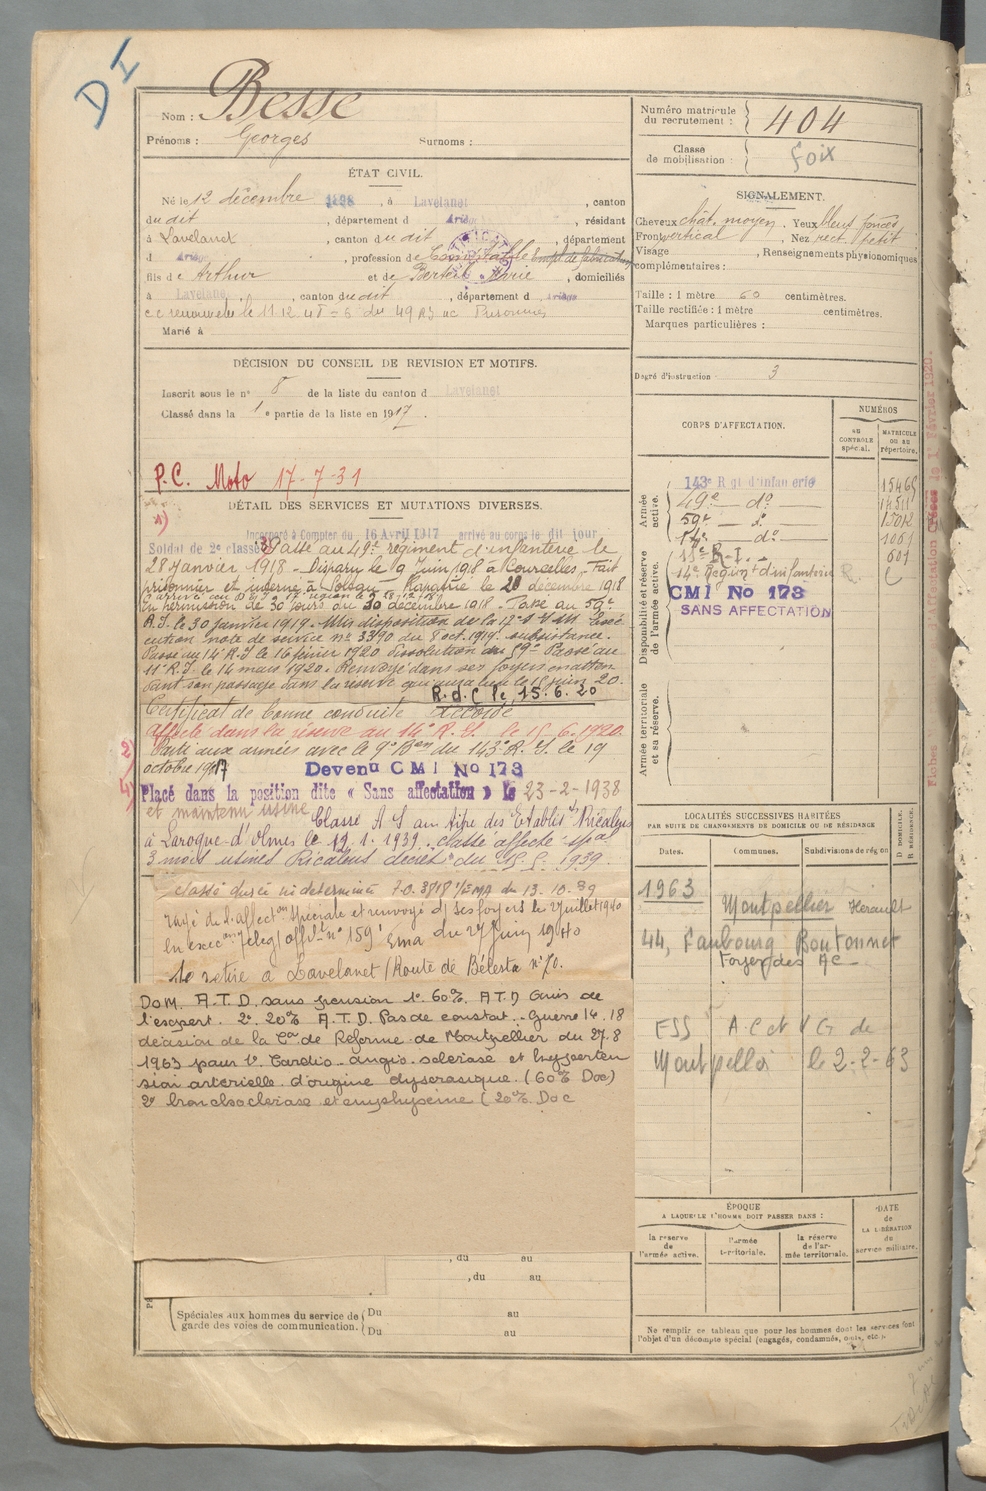 DI
Nom : Besse
Prénoms : Georges Surnoms :
Numéro matricule du recrutement : 404
Classe de mobilisation : Foix
ÉTAT CIVIL.
Né le 12 décembre 1898, à Lavelanet, canton
du dit, département d Ariège, résidant
à Lavelanet, canton du dit, département
d Ariège, profession de Comptable
fils de Arthur et de Berteil Marie, domiciliés
à Lavelanet, canton du dit, département d Ariège
Marié à
DÉCISION DU CONSEIL DE REVISION ET MOTIFS.
Inscrit sous le n° 8 de la liste du canton d Lavelanet
Classé dans la 1e partie de la liste en 1917.
P.C. Moto 17-7-31
DÉTAIL DES SERVICES ET MUTATIONS DIVERSES.
Incorporé à Compter du 16 Avril 1917 arrivé au corps le dit jour
Soldat de 2e classe Passé au 49e régiment d'infanterie le
28 Janvier 1918 - Disparu le 9 juin 1918 à Courcelles - Fait
prisonnier et interné à Rapatrié le 28 décembre 1918
En permission de 30 jours du 30 décembre 1918 - Passé au 59e
R.I. le 30 janvier 1919. Mis disposition de la 17e
cution note de service n° 3390 du 8 oct. 1919. subsistance.
Passé au 14e R.I le 16 février 1920 dissolution du 59e Passé au
11e R.I. le 14 mars 1920. Renvoyé dans ses foyers en atten
dant son passage dans la réserve qui aura lieu le 15 juin 20.
R.d.C le 15.6.20
Certificat de bonne conduite accordé
Affecté dans la réserve au 14e R.I. le 15.6.1920.
Parti aux armées avec le 9e Bon du 143e R.I. le 19
octobre 1917
Devenu CMI No 173
Placé dans la position dite « Sans affectation » le 23-2-1938
et maintenu usine Classé A S au titre des Etablts Ricalens
à Laroque-d'Olmes le 12.1.1939. classé affecté spal
3 mois usines Ricalens décret du 1939.
Classé durée indéterminée 70.3818 1/EMA du 13.10.39
rayé de l'affecton spéciale et renvoyé ds ses foyers le 2 juillet 1940
en execon téleg/offel n° 159 Ema du 27 Juin 1940
Se retire à Lavelanet (Route de Bélesta n° 70.
DOM. A.T.D. sans pension 1° 60%. A.T.D avis de
l'expert. 2° 20% A.T.D. Pas de constat. Guerre 14.18
décision de la Con de Réforme de Montpellier du 27.8
1963 pour 1° Cardio-angio-sclérose et hyperten
sion artérielle d'origine dyscrasique. (60% Doc)
2° bronchosclérose et emphysème (20% Doc
, du au
, du au
Spéciales aux hommes du service de garde des voies de communication. Du au
Du au
SIGNALEMENT.
Cheveux chât. moyen. Yeux bleus foncés
Front vertical Nez rect. petit
Visage , Renseignements physionomiques
complémentaires :
Taille : 1 mètre 60 centimètres.
Taille rectifiée : 1 mètre centimètres.
Marques particulières :
Degré d'instruction 3
CORPS D'AFFECTATION.
NUMÉROS
AU CONTRÔLE spécial.
MATRICULE OU AU répertoire.
Armée active.
143e Rgt d'infanterie 15465
49e — do 14511
59e — do 15012
14e — do 1061
11e R.I. - 601
Disponibilité et réserve de l'armée active.
14e Régimt d'infanterie
CMI No 173
SANS AFFECTATION
Armée territoriale et sa réserve.
LOCALITÉS SUCCESSIVES HABITÉES
PAR SUITE DE CHANGEMENTS DE DOMICILE OU DE RÉSIDENCE
Dates. Communes. Subdivisions de région
D DOMICILE. R RÉSIDENCE.
1963 Montpellier Herault
44, Faubourg Boutonnet
Foyer des AC
ESS A.C et V G de
Montpellier le 2-2-63
ÉPOQUE
A LAQUELLE L'HOMME DOIT PASSER DANS :
la réserve de l'armée active.
l'armée territoriale.
la réserve de l'armée territoriale.
DATE de LA LIBÉRATION du service militaire.
Ne remplir ce tableau que pour les hommes dont les services font
l'objet d'un décompte spécial (engagés, condamnés, omis, etc.).